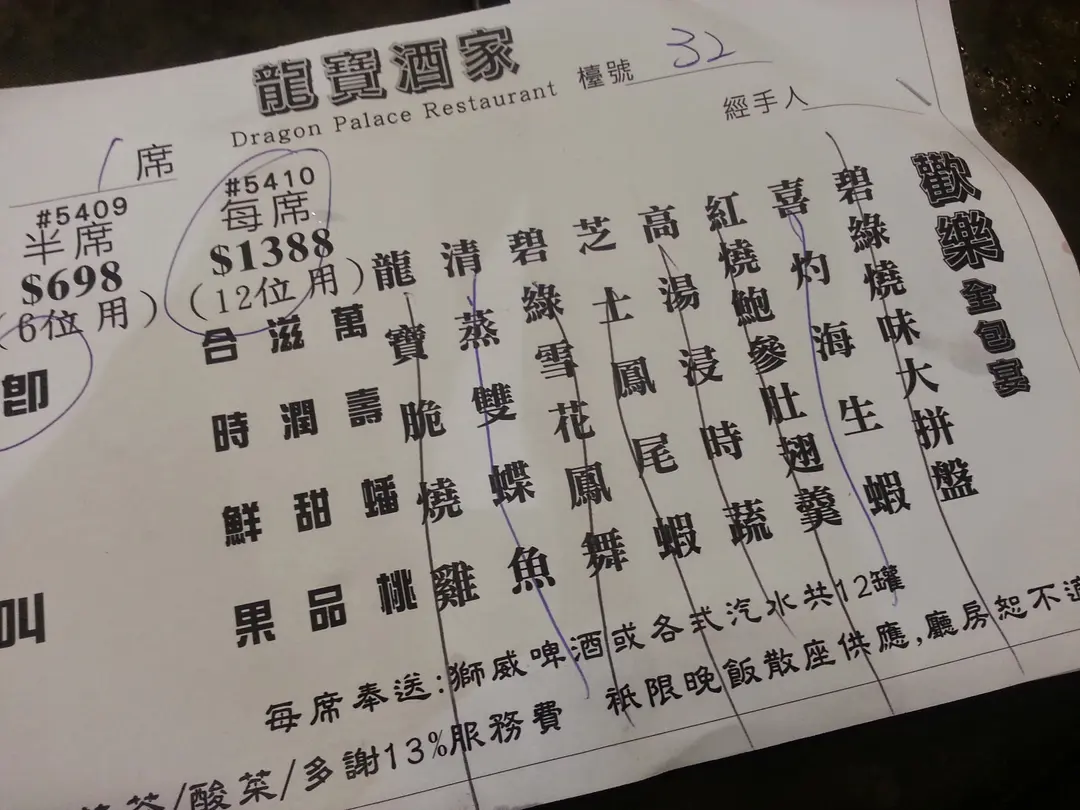 龍寶酒家
Dragon Palace Restaurant
檯號 32
經手人
1 席
#5409
半席
$698
(6位用)
#5410
每席
$1388
(12位用)
歡樂全包宴
碧綠燒味大拼盤
喜灼海生蝦
紅燒鮑參肚翅羹
高湯浸時蔬
芝士鳳尾蝦
碧綠雪花鳳舞
清蒸雙蝶魚
龍寶脆燒雞
萬壽蟠桃
滋潤甜品
合時鮮果
即叫
每席奉送:獅威啤酒或各式汽水共12罐
/酸菜/多謝13%服務費 祇限晚飯散座供應,廳房恕不